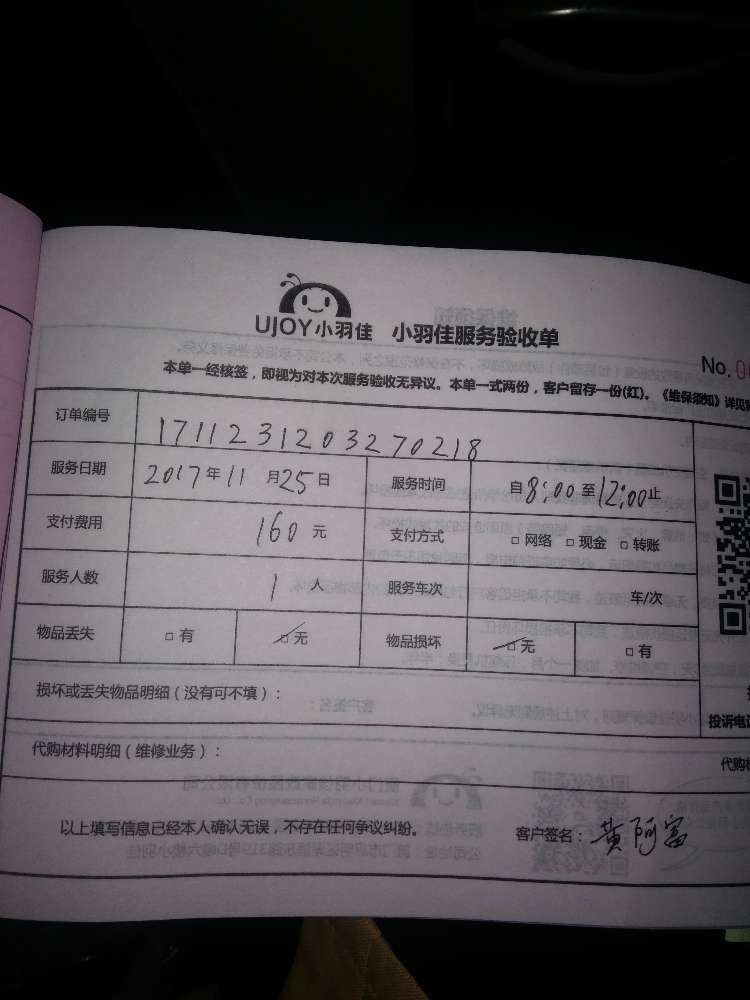 UJOY小羽佳 小羽佳服务验收单
No.
本单一经核签，即视为对本次服务验收无异议。本单一式两份，客户留存一份(红)。《维保须知》详见
订单编号 1711231203270218
服务日期 2017年11月25日 服务时间 自8:00至12:00止
支付费用 160元 支付方式 □网络 □现金 □转账
服务人数 1人 服务车次 车/次
物品丢失 □有 □无 物品损坏 □无 □有
损坏或丢失物品明细（没有可不填）：
投诉电
代购材料明细（维修业务）：
代购
以上填写信息已经本人确认无误，不存在任何争议纠纷。 客户签名：黄阿富